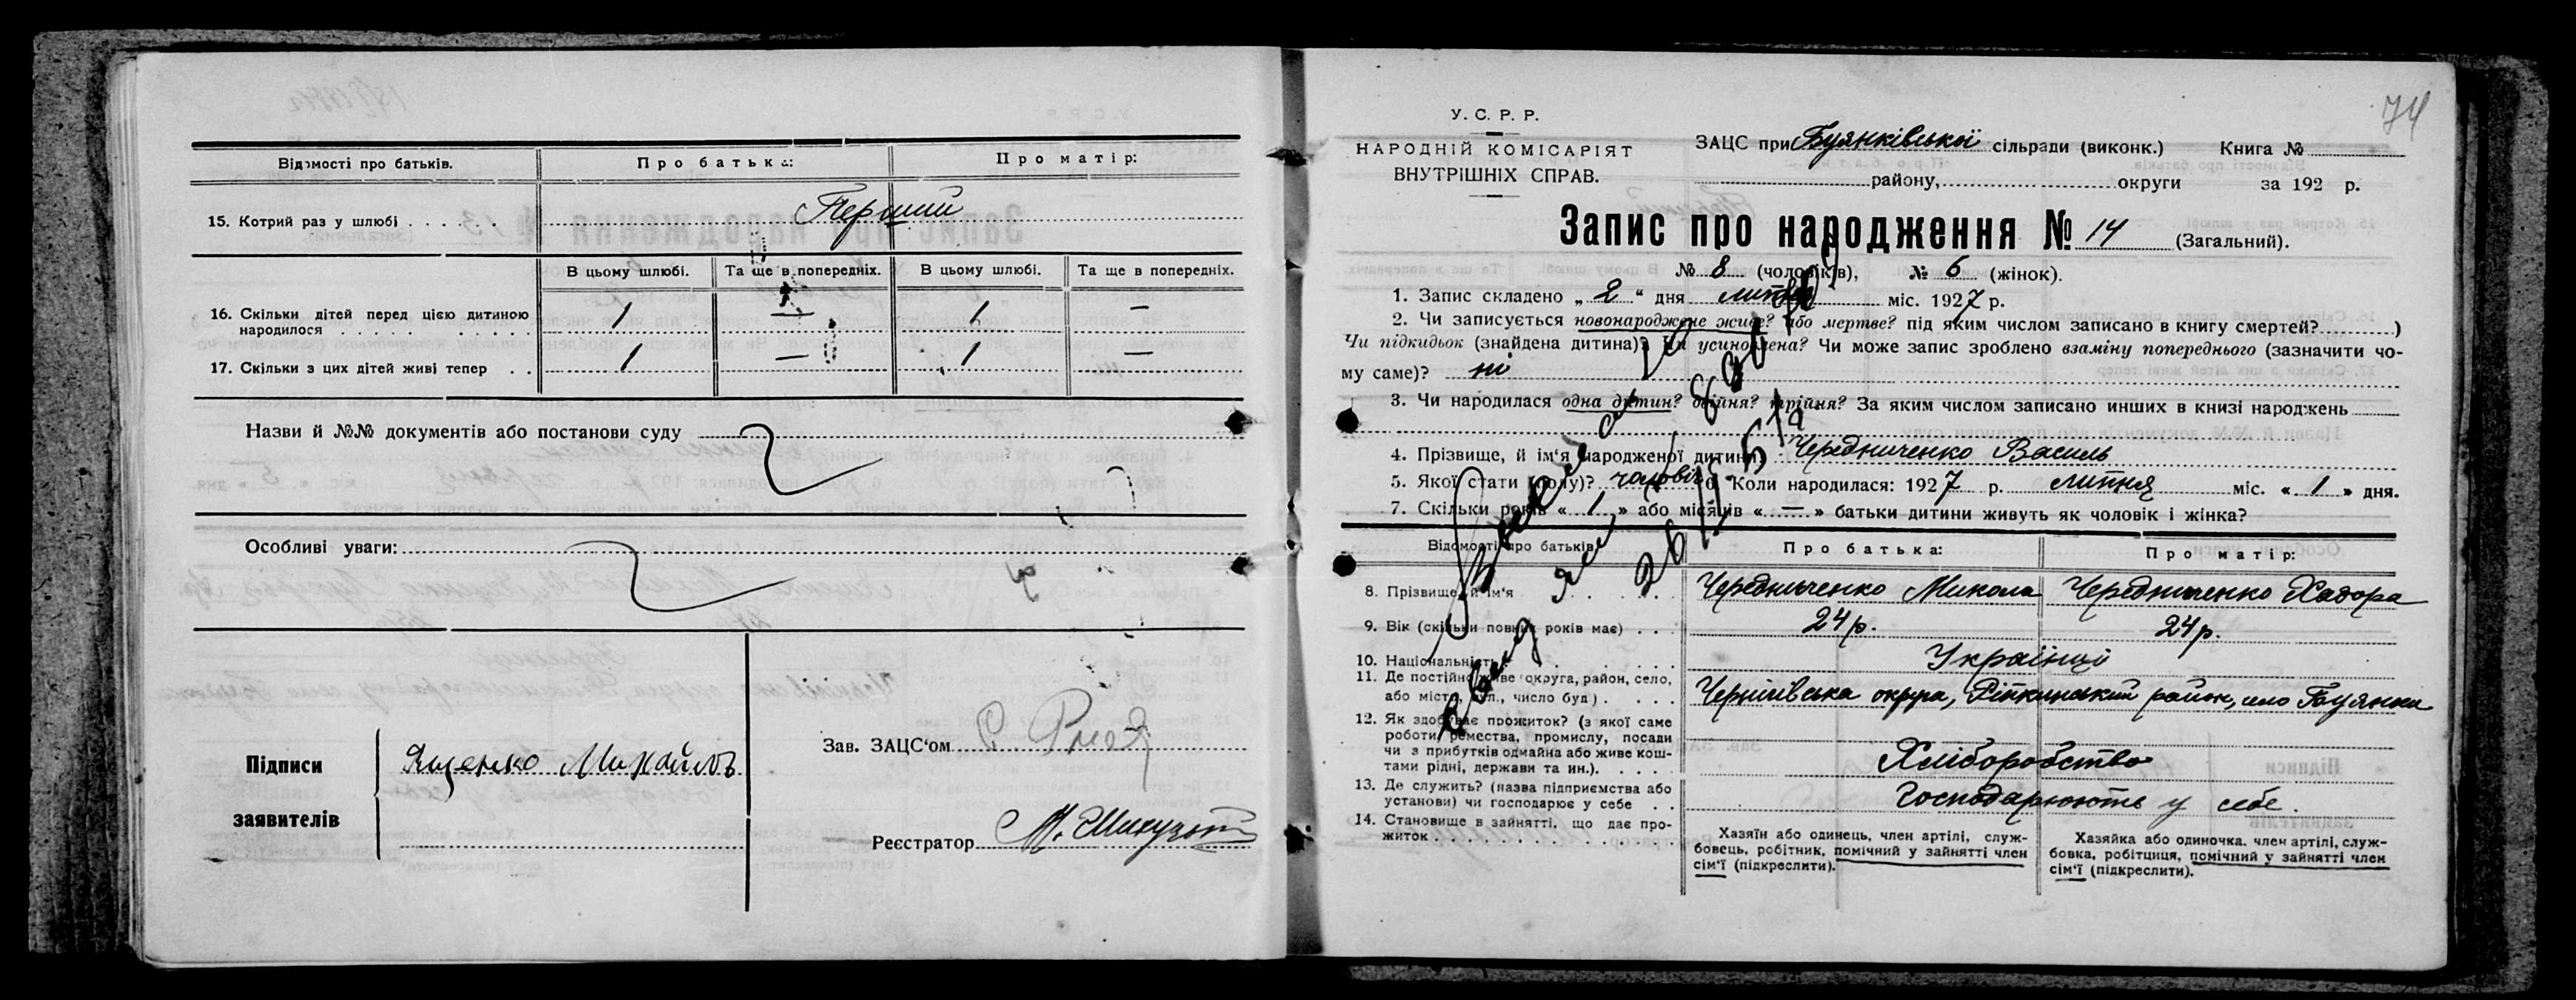 Відомості про батьків.
Про батька:
Про матір:
15. Котрий раз у шлюбі
Перший
В цьому шлюбі.
Та ще в попередніх.
В цьому шлюбі.
Та ще в попередніх.
16. Скільки дітей перед цією дитиною
народилося
1 — 1 —
17. Скільки з цих дітей живі тепер 1 — 1 —
Назви й №№ документів або постанови суду
Особливі уваги:
Підписи
заявителів
Ященко Михайло
Зав. ЗАЦС'ом
Реєстратор
74
У. С. Р. Р.
НАРОДНІЙ КОМІСАРІЯТ
ВНУТРІШНІХ СПРАВ.
ЗАЦС при Буянківської сільради (виконк.) Книга №
району, округи за 192 р.
Запис про народження № 14 (Загальний).
№ 8 (чоловіків), № 6 (жінок).
1. Запис складено „ 2 “ дня липня міс. 1927 р.
2. Чи записується новонароджене живе? або мертве? під яким числом записано в книгу смертей? )
Чи підкидьок (знайдена дитина)? Чи усиновлена? Чи може запис зроблено взаміну попереднього (зазначити чо-
му саме)? ні
3. Чи народилася одна дитин? двійня? трійня? За яким числом записано инших в книзі народжень
4. Прізвище, й ім'я народженої дитини Чередниченко Василь
5. Якої стати (полу)? чоловіч 6. Коли народилася: 1927 р. липня міс. « 1 » дня.
7. Скільки років « 1 » або місяців « — » батьки дитини живуть як чоловік і жінка?
Відомості про батьків
Про батька:
Про матір:
8. Прізвище, й ім'я
Чередниченко Микола
Чередниченко Хадора
9. Вік (скільки повних років має)
24 р.
24 р.
10. Національність
Українці
11. Де постійно живе (округа, район, село,
або місто, вул., число буд).
Чернігівська округа, Ріпкинський район, село Буянки
12. Як здобуває прожиток? (з якої саме
роботи, ремества, промислу, посади
чи з прибутків од майна або живе кош-
тами рідні, держави та ин.).
Хліборобство
13. Де служить? (назва підприємства або
установи) чи господарює у себе
Господарюють у себе.
14. Становище в зайнятті, що дає про-
житок
Хазяїн або одинець, член артілі, служ-
бовець, робітник, помічний у зайнятті член
сім'ї (підкреслити).
Хазяйка або одиночка, член артілі, служ-
бовка, робітниця, помічний у зайнятті член
сім'ї (підкреслити).